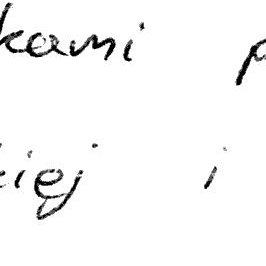 kami p
kiej i